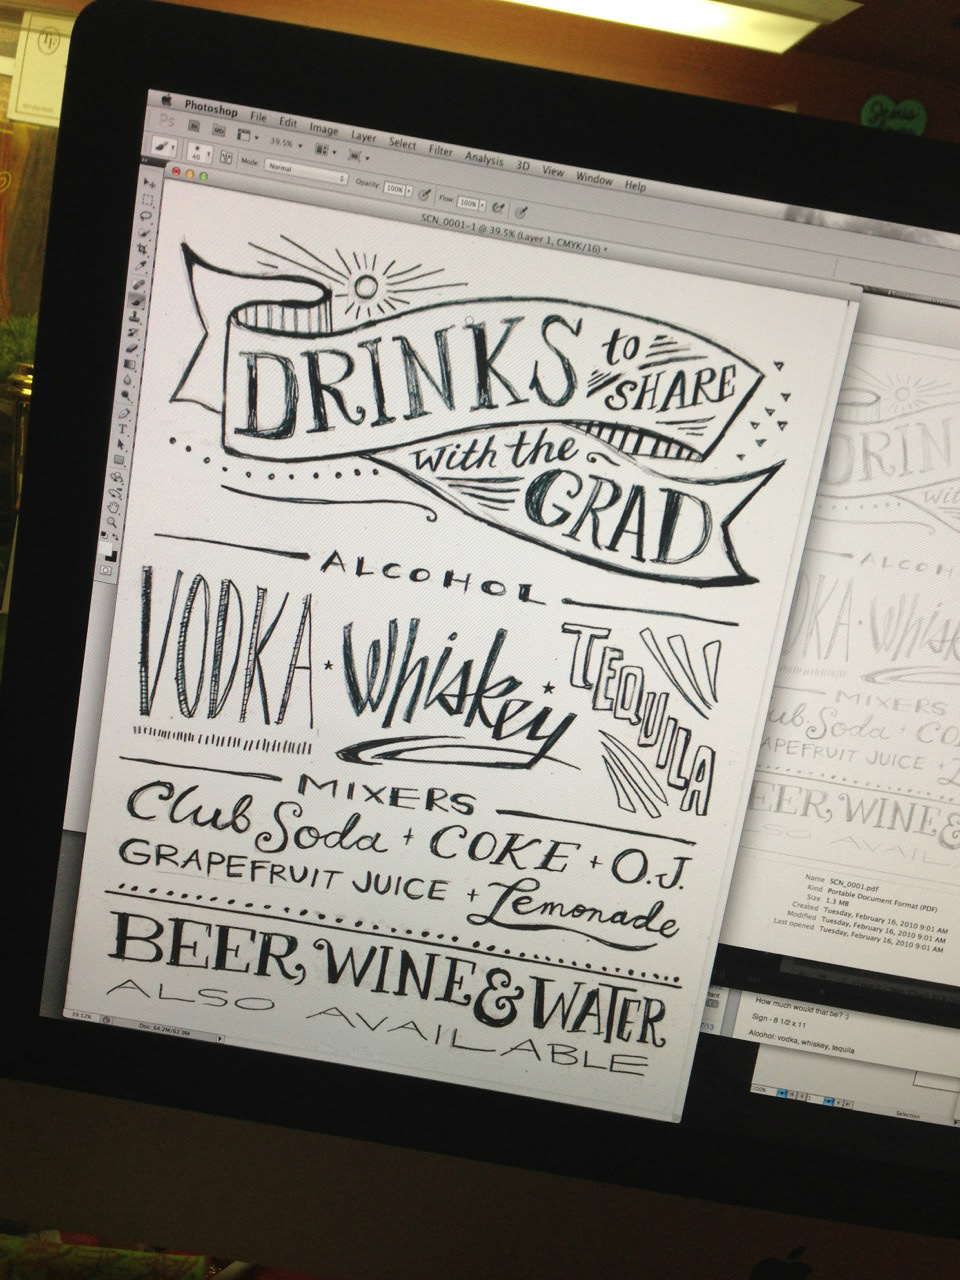 Photoshop File Edit Image Layer Select Filter Analysis 3D View Window Help
Ps Br Mb 39.5%
40 Mode: Normal Opacity: 100% Flow: 100%
SCN_0001-1 @ 39.5% (Layer 1, CMYK/16) *
DRINKS to
SHARE
with the
GRAD
ALCOHOL
VODKA Whiskey TEQUILA
MIXERS
Club Soda + COKE + O.J.
GRAPEFRUIT JUICE + Lemonade
BEER, WINE & WATER
ALSO AVAILABLE
39.52% Doc: 64.2M/62.9M
DRIN
wit
ALCOH
DKA Whisk
MIXERS
ub Soda + CO
APEFRUIT JUICE + L
EER, WINE &
LSO AVAIL
Name SCN_0001.pdf
Kind Portable Document Format (PDF)
Size 1.3 MB
Created Tuesday, February 16, 2010 9:01 AM
Modified Tuesday, February 16, 2010 9:01 AM
Last opened Tuesday, February 16, 2010 9:01 AM
How much would that be? :)
Sign - 8 1/2 x 11
Alcohol: vodka, whiskey, tequila
100%
Selection